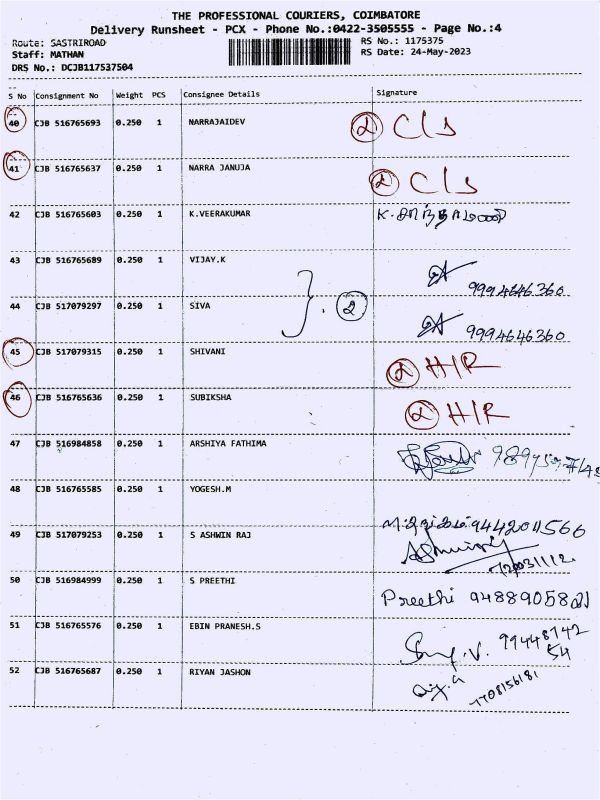 THE PROFESSIONAL COURIERS, COIMBATORE
Delivery Runsheet - PCX - Phone No.:0422-3505555 - Page No.:4
Route: SASTRIROAD RS No.: 1175375
Staff: MATHAN RS Date: 24-May-2023
DRS No.: DCJB117537504
S No Consignment No Weight PCS Consignee Details Signature
40 CJB 516765693 0.250 1 NARRAJAIDEV 2 C/s
41 CJB 516765637 0.250 1 NARRA JANUJA 2 C/s
42 CJB 516765603 0.250 1 K.VEERAKUMAR
43 CJB 516765689 0.250 1 VIJAY.K 9994646360
2
44 CJB 517079297 0.250 1 SIVA 9994646360
45 CJB 517079315 0.250 1 SHIVANI 2 H/R
46 CJB 516765636 0.250 1 SUBIKSHA 2 H/R
47 CJB 516984858 0.250 1 ARSHIYA FATHIMA
48 CJB 516765585 0.250 1 YOGESH.M 9442041560
49 CJB 517079253 0.250 1 S ASHWIN RAJ
50 CJB 516984999 0.250 1 S PREETHI Preethi
51 CJB 516765576 0.250 1 EBIN PRANESH.S 9944874254
52 CJB 516765687 0.250 1 RIYAN JASHON 7708156181